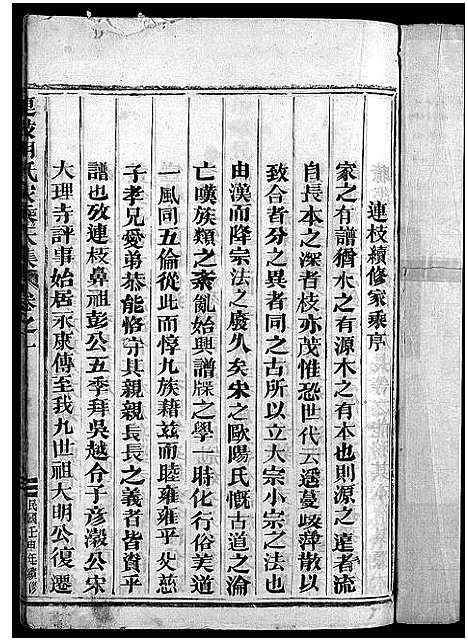 連枝續修家乘序
家之有譜猶水之有源木之有本也則源之遠者流
自長本之深者枝亦茂惟恐世代云遙蔓歧萍散以
致合者分之異者同之古所以立大宗小宗之法也
由漢而降宗法之廢久矣宋之歐陽氏慨古道之淪
亡嘆族類之紊亂始興譜牒之學一時化行俗美道
一風同五倫從此而惇九族藉茲而睦雍雍乎父慈
子孝兄愛弟恭能恪守其親親長長之義者皆賚乎
譜也攷連枝鼻祖彭公五季拜吳越分子彥澂公宋
大理寺評事始居永康傳至我九世祖大明公復遷
民國壬申年續修